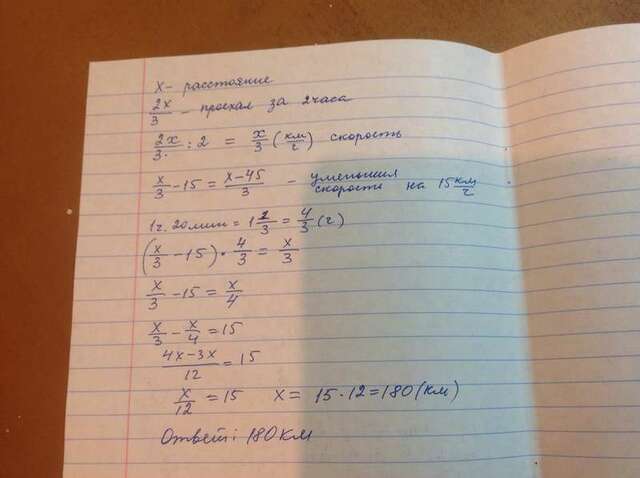 x - расстояние
2x/3 - проехал за 2 часа
2x/3 : 2 = x/3 (км/ч) скорость
x/3 - 15 = x-45/3 - уменьшил скорость на 15 км/ч
1ч. 20 мин = 1 2/3 = 4/3 (ч)
(x/3 - 15) · 4/3 = x/3
x/3 - 15 = x/4
x/3 - x/4 = 15
4x-3x/12 = 15
x/12 = 15 x = 15 · 12 = 180 (км)
Ответ: 180 км